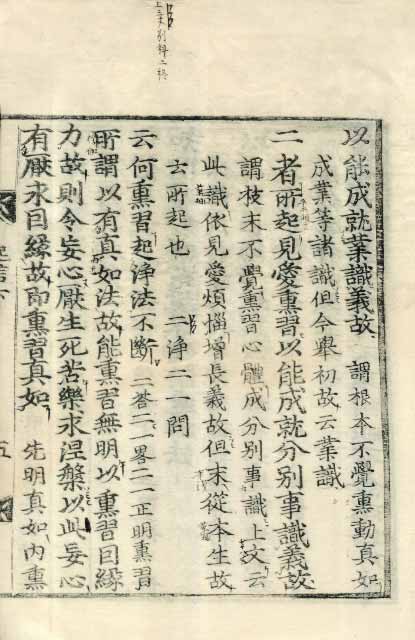 以能成就業識義故 謂根本不覺熏動真如
成業等諸識但今舉初故云業識
二者所起見愛熏習以能成就分別事識義故
謂枝末不覺熏習心體成分別事識上文云
此識依見愛煩惱增長義故但末從本生故
云所起也 二淨二一問
云何熏習起淨法不斷 二答二一畧二一正明熏習
所謂以有真如法故能熏習無明以熏習因緣
力故則令妄心厭生死苦樂求涅槃以此妄心
有厭求因緣故即熏習真如 先明真如內熏
五